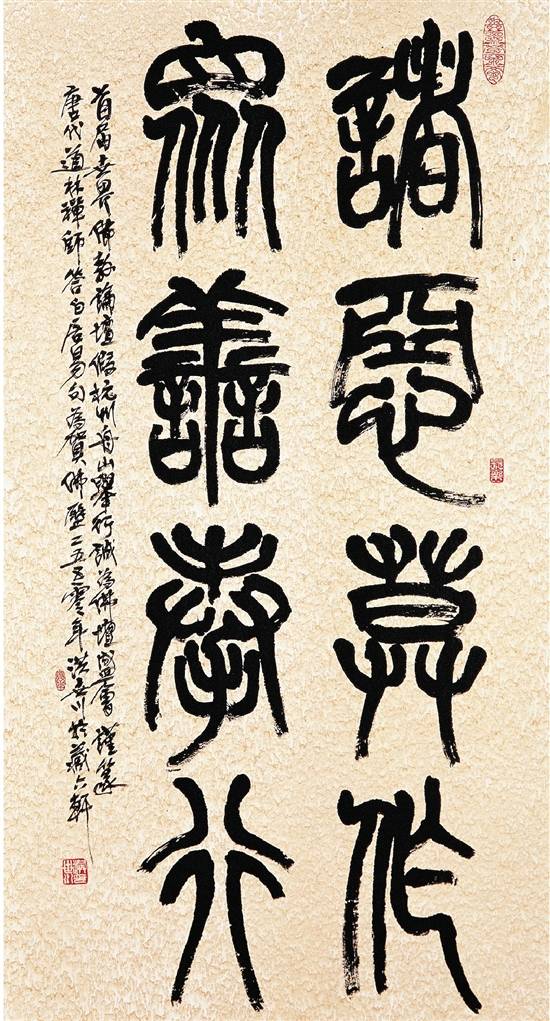 諸惡莫作
眾善奉行
首届世界佛教論壇假杭州舟山舉行誠為佛壇盛會謹篆
唐代道林禪師答白居易句為賀佛歷二五五零年洪世川於藏六軒